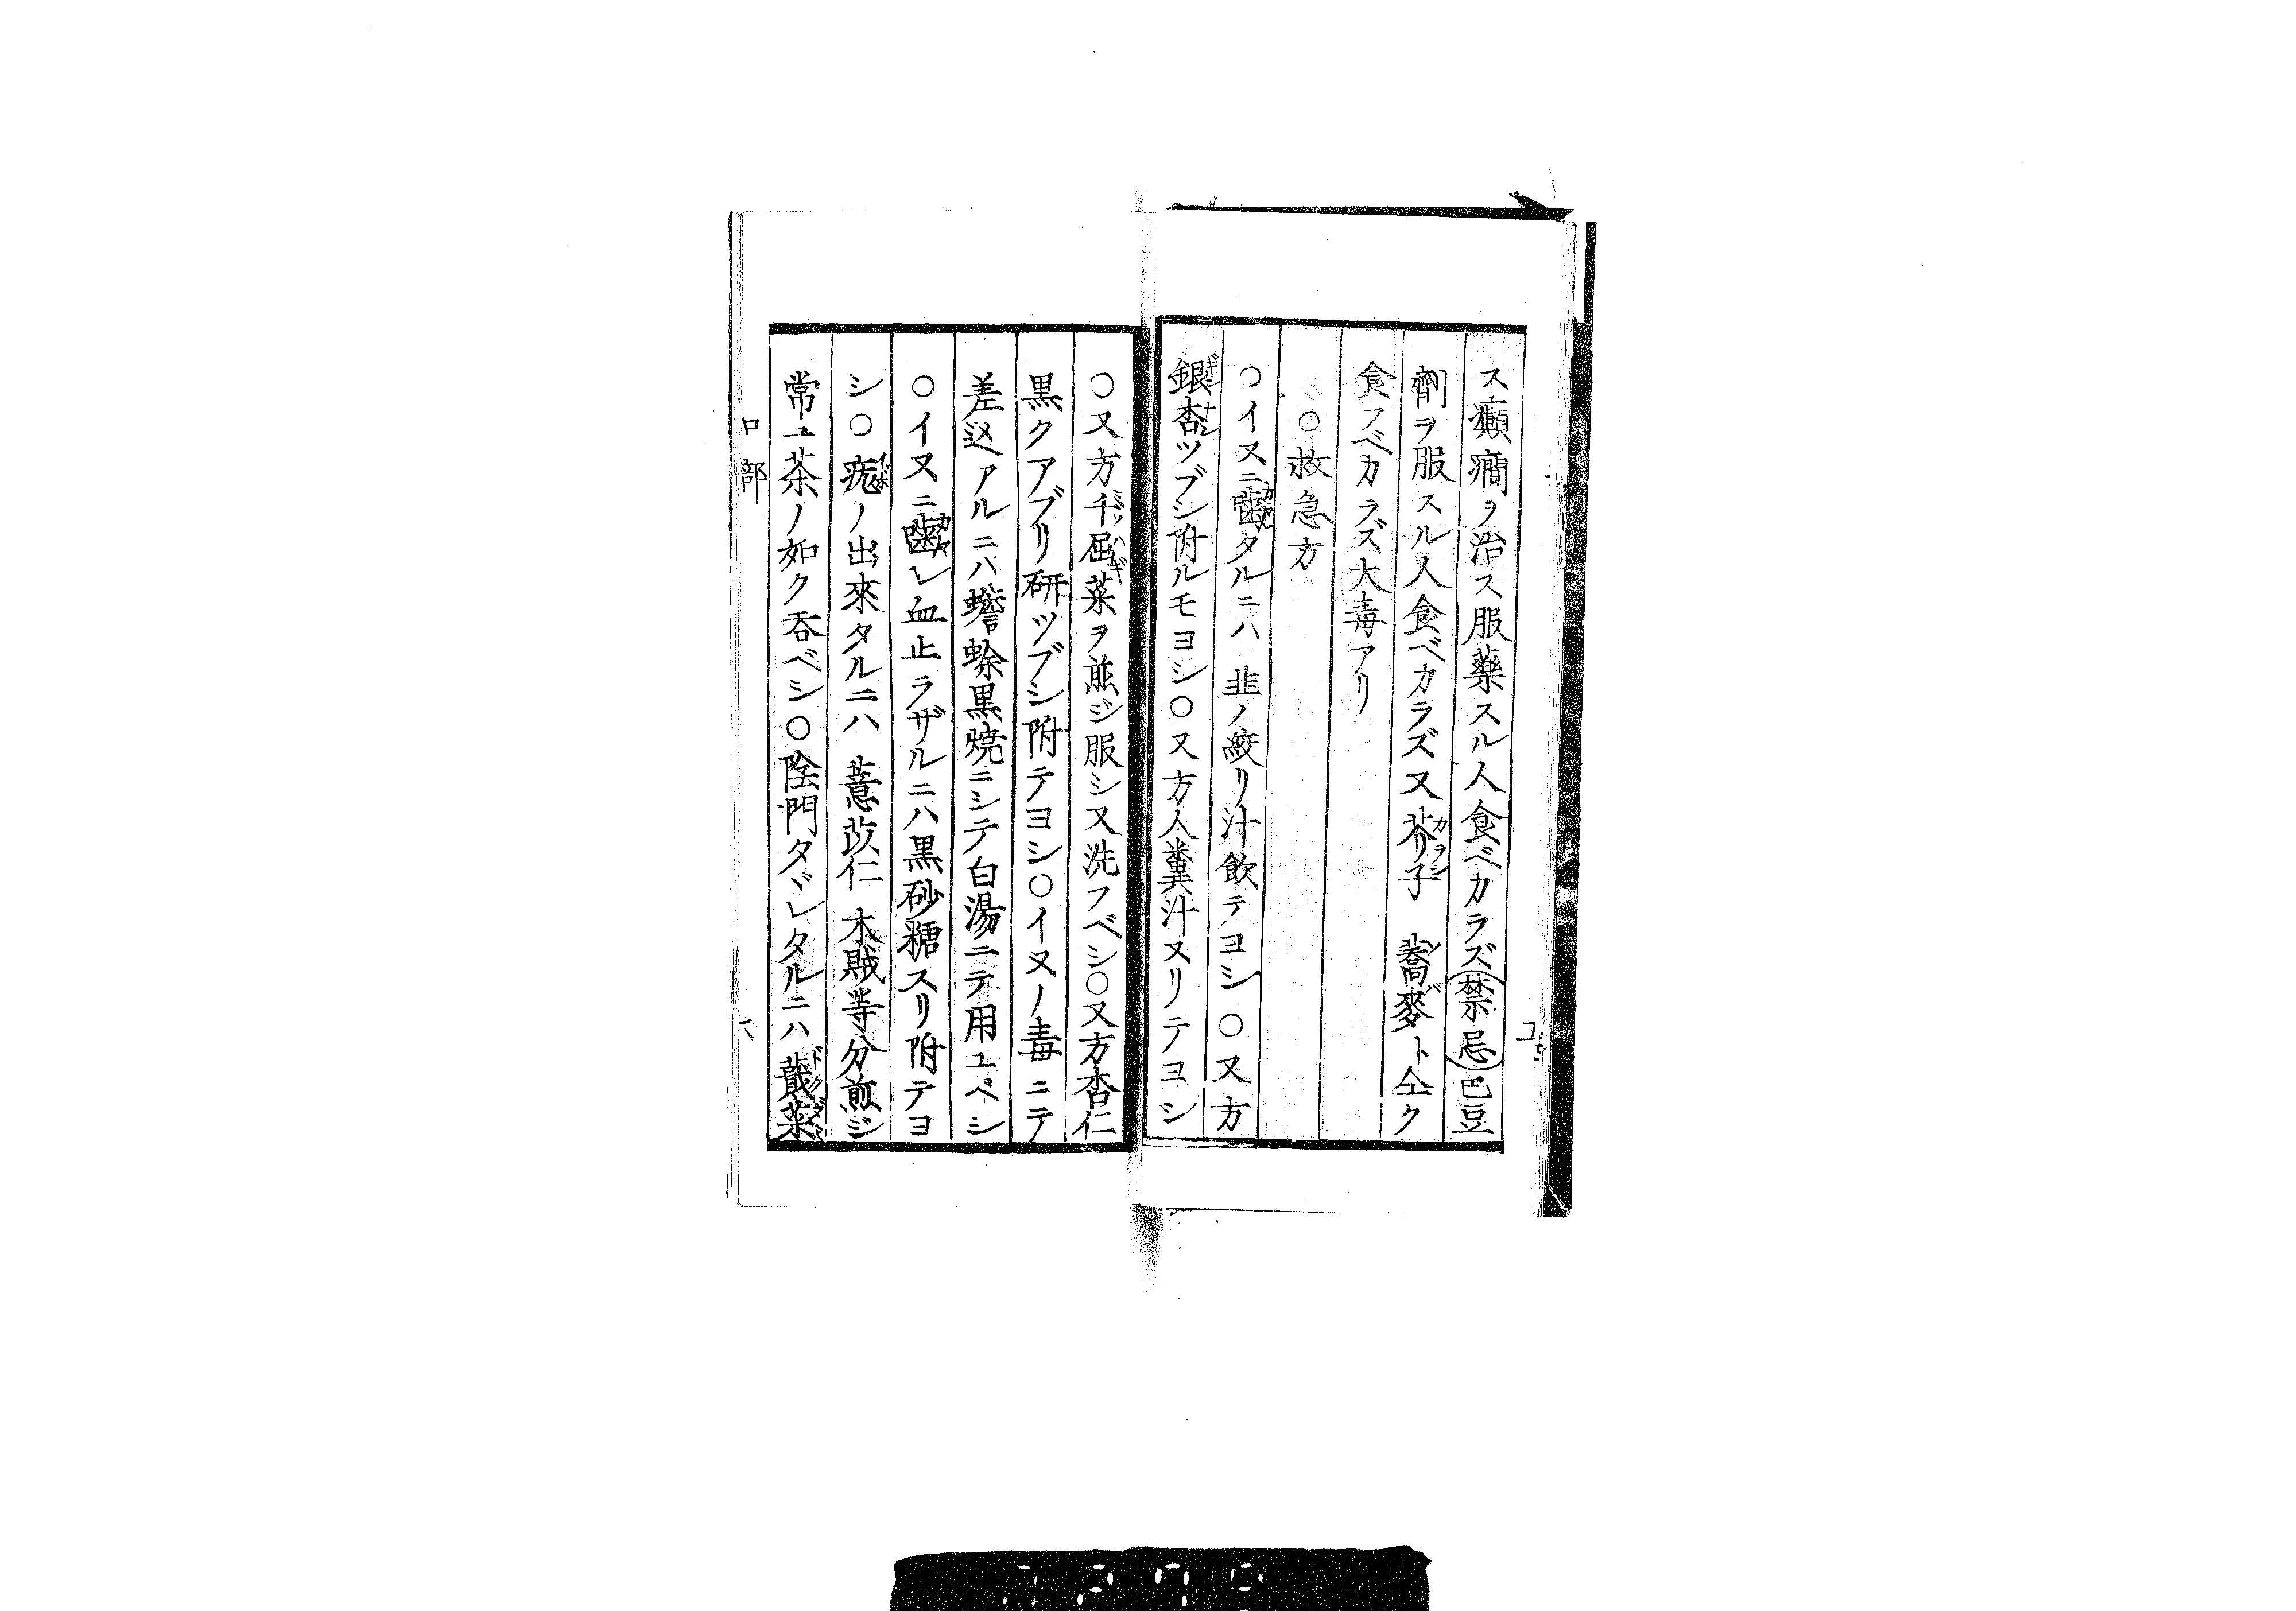 ス癲癇ヲ治ス服藥スル人食ベカラズ(禁忌)巴豆
劑ヲ服スル人食ベカラズ又芥リ子カラシ蕎麥ソバト仝ク
食フベカラズ大毒アリ
○救急方
○イヌニ噛カマレタルニハ韭ノ絞リ汁飲テヨシ○又方
銀杏ギンナンツブシ附ルモヨシ○又方人糞汁ヌリテヨシ
○又方千屈菜ミソハギヲ煎ジ服シ又洗フベシ○又方杏仁
黒クアブリ研ツブシ附テヨシ○イヌノ毒ニテ
差込アルニハ蟾蜍黒焼ニシテ白湯ニテ用ユベシ
○イヌニ噛カマレ血止ラザルニハ黒砂糖スリ附テヨ
シ○疣イボノ出來タルニハ薏苡仁木賊等分煎ジ
常ニ茶ノ如ク呑ベシ○陰門タヾレタルニハ蕺菜ドクダミ
口部
六